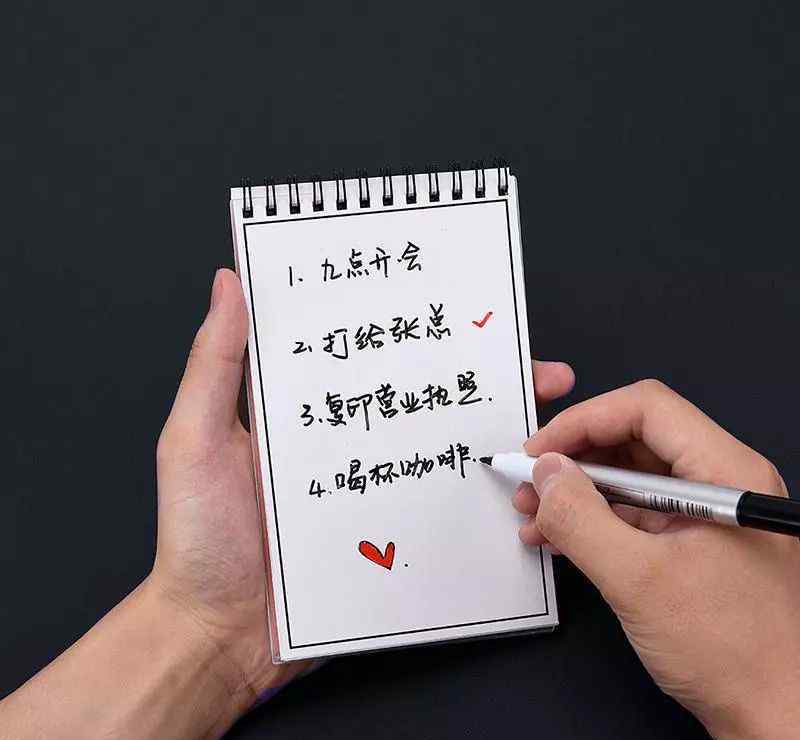 1. 九点开会
2. 打给张总
3. 复印营业执照.
4. 喝杯咖啡.